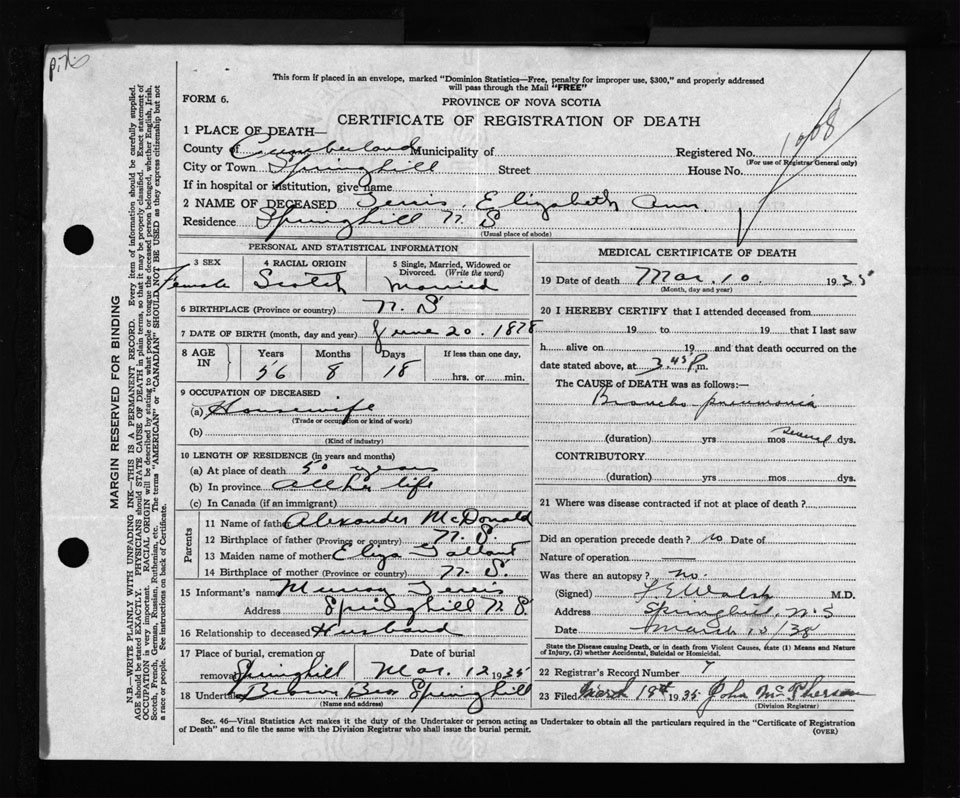 This form if placed in an envelope, marked "Dominion Statistics—Free, penalty for improper use, $300," and properly addressed
will pass through the Mail "FREE"
FORM 6.
PROVINCE OF NOVA SCOTIA
CERTIFICATE OF REGISTRATION OF DEATH
1 PLACE OF DEATH—
County of Cumberland Municipality of Registered No. 1008
(For use of Registrar General only)
City or Town Springhill Street House No.
If in hospital or institution, give name
2 NAME OF DECEASED Ferris, Elizabeth Ann.
Residence Springhill N. S
(Usual place of abode)
PERSONAL AND STATISTICAL INFORMATION
3 SEX 4 RACIAL ORIGIN 5 Single, Married, Widowed or
Divorced. (Write the word)
Female Scotch Married
6 BIRTHPLACE (Province or country) N. S
7 DATE OF BIRTH (month, day and year) June 20. 1878
8 AGE IN Years Months Days If less than one day,
56 8 18 hrs. or min.
9 OCCUPATION OF DECEASED
(a) Housewife
(Trade or occupation or kind of work)
(b)
(Kind of industry)
10 LENGTH OF RESIDENCE (in years and months)
(a) At place of death 50 years
(b) In province all her life
(c) In Canada (if an immigrant)
Parents
11 Name of father Alexander McDonald
12 Birthplace of father (Province or country) N. S.
13 Maiden name of mother Eliza
14 Birthplace of mother (Province or country) N. S.
15 Informant's name Murray Ferris
Address Springhill N S.
16 Relationship to deceased Husband
17 Place of burial, cremation or removal Date of burial
Springhill Mar. 12 1935
18 Undertaker Brown Bros Springhill
(Name and address)
MEDICAL CERTIFICATE OF DEATH
19 Date of death Mar. 10 1935
(Month, day and year)
20 I HEREBY CERTIFY that I attended deceased from
19 to 19 that I last saw
h alive on 19 and that death occurred on the
date stated above, at 3.45 P.m.
The CAUSE of DEATH was as follows:—
Broncho-pneumonia
(duration) yrs mos several dys.
CONTRIBUTORY
(duration) yrs mos dys.
21 Where was disease contracted if not at place of death?
Did an operation precede death? no Date of
Nature of operation
Was there an autopsy? no.
(Signed) Walsh M.D.
Address Springhill, N.S
Date March 10/35
State the Disease causing Death, or in death from Violent Causes, state (1) Means and Nature
of Injury, (2) whether Accidental, Suicidal or Homicidal.
22 Registrar's Record Number 7
23 Filed March 19th 1935 John McPherson
(Division Registrar)
Sec. 46—Vital Statistics Act makes it the duty of the Undertaker or person acting as Undertaker to obtain all the particulars required in the "Certificate of Registration
of Death" and to file the same with the Division Registrar who shall issue the burial permit.
(OVER)
MARGIN RESERVED FOR BINDING
N.B.—WRITE PLAINLY WITH UNFADING INK—THIS IS A PERMANENT RECORD. Every item of information should be carefully supplied.
AGE should be stated EXACTLY. PHYSICIANS should STATE CAUSE OF DEATH in plain terms, so that it may be properly classified. Exact statement of
OCCUPATION is very important. RACIAL ORIGIN will be described by stating to what people or tongue the deceased person belonged, whether English, Irish,
Scotch, French, German, Russian, Ruthenian, etc. The terms "AMERICAN" or "CANADIAN" SHOULD NOT BE USED as they express citizenship but not
a race or people. See instructions on back of Certificate.